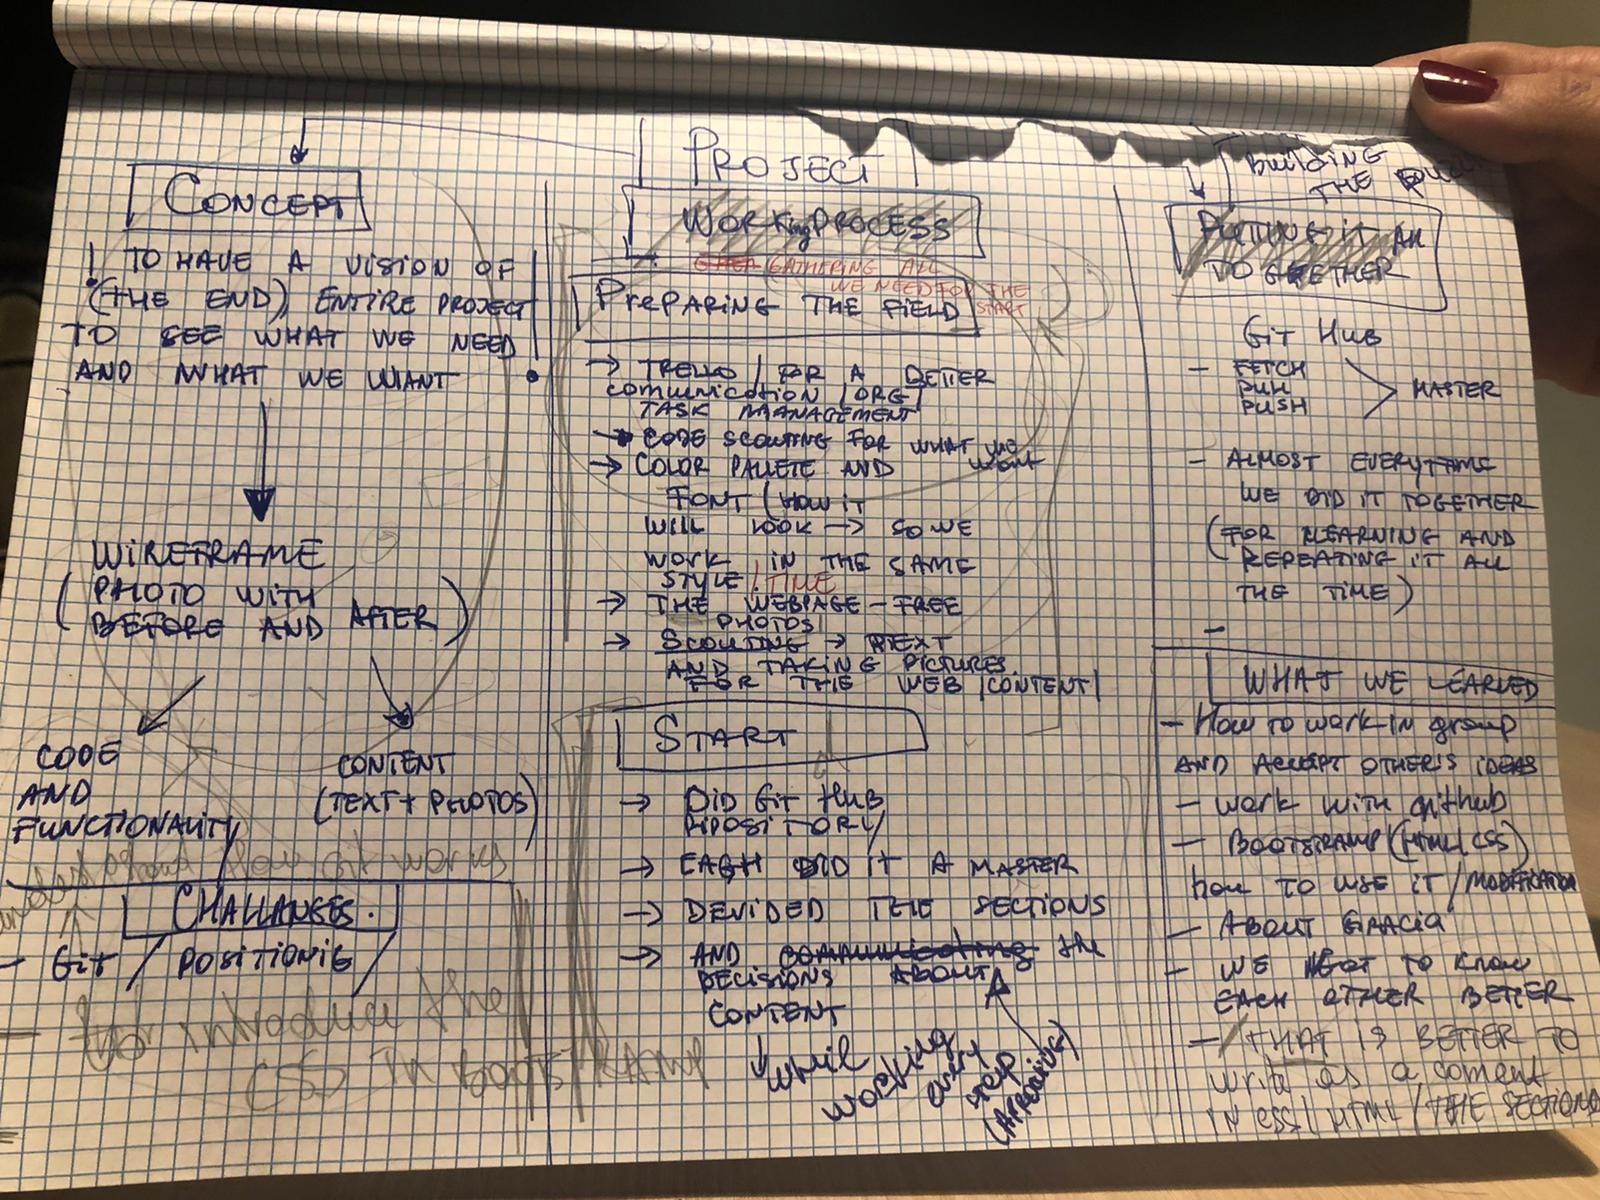 PROJECT
CONCEPT
! TO HAVE A VISION OF
(THE END), ENTIRE PROJECT
TO SEE WHAT WE NEED
AND WHAT WE WANT
WIREFRAME
(PHOTO WITH
BEFORE AND AFTER)
CODE
AND
FUNCTIONALITY
CONTENT
(TEXT + PHOTOS)
how it works
CHALLANGES.
- Git / POSITIONIG /
- introduce the
CSS IN
WORKing PROCESS
GATHERING ALL
WE NEED FOR THE
START
PrePARING THE FIELD
→ TRELLO / FOR A BETTER
communication / ORG /
TASK MANAGEMENT
→ CODE SCOUTING FOR WHAT WE
WANT
→ COLOR PALLETE AND
FONT (HOW IT
WILL LOOK → SO WE
WORK IN THE SAME
STYLE / TIME
→ THE WEBPAGE - FREE
PHOTOS
→ SCOUTING → TEXT
AND TAKING PICTURES
FOR THE WEB / CONTENT /
START
→ DID Git HUB
RIPOSITORY /
→ EACH DID IT A MASTER
→ DEVIDED THE SECTIONS
→ AND communicating the
DECISIONS ABOUT
CONTENT
↓ whil
working
every
step
(APPROVING)
BuilDING
THE
PUTTING IT All
TOGETHER
Git HuB
- FETCH
PULL
PUSH
MASTER
- ALMOST EVERYTIME
WE DID IT TOGETHER
(FOR LEARNING AND
REPEATING IT All
THE TIME)
-
WHAT WE LEARNED
- How to work in group
AND ACCEPT OTHER'S IDEAS
- work with github
- BOOTSTRAMP (HTML / CSS)
how TO USE IT / MODIFICATION
- ABOUT GRACIA
- WE GOT TO KNOW
EACH OTHER BETTER
- THAT IS BETTER TO
write as a coment
IN CSS / HTML / THE SECTIONS